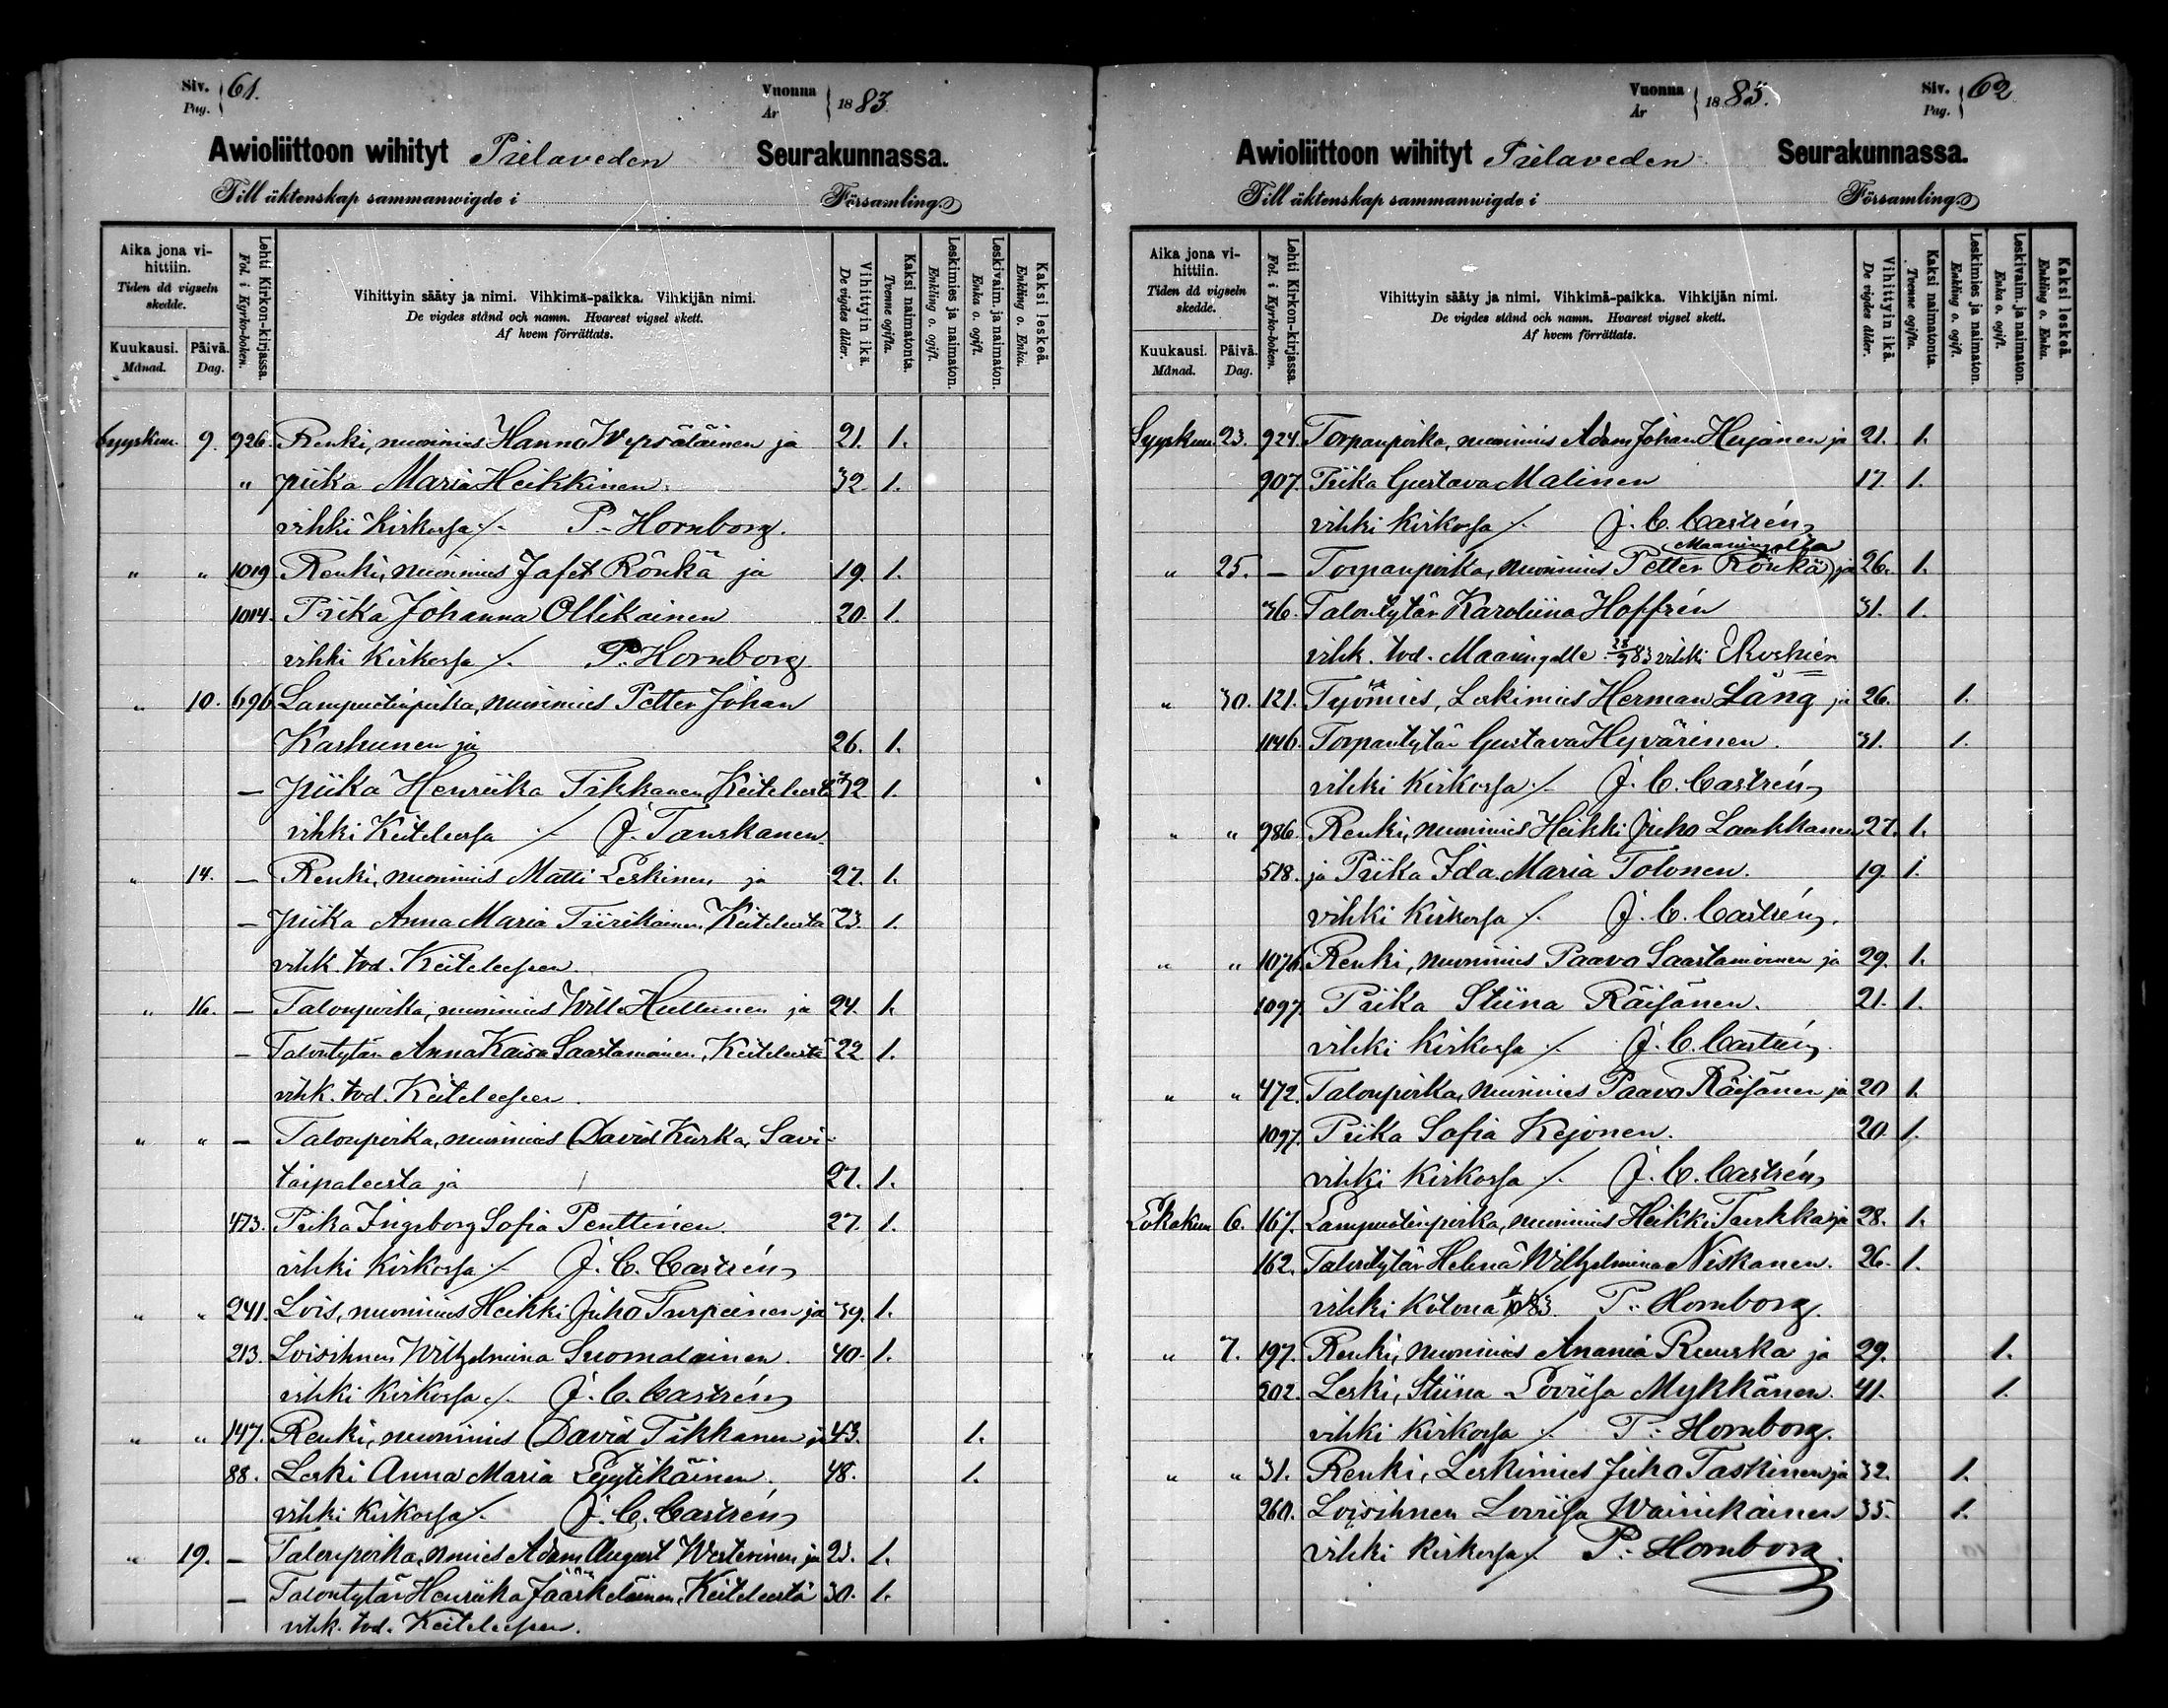 Siv. Pag. 61.
Vuonna År 1883
Awioliittoon wihityt Pielaveden Seurakunnassa.
Till äktenskap sammanwigde i Församling.
Aika jona vihittiin. Tiden då vigseln skedde.
Kuukausi. Månad.
Päivä. Dag.
Lehti Kirkon-kirjassa. Fol. i Kyrko-boken.
Vihittyin sääty ja nimi. Vihkimä-paikka. Vihkijän nimi.
De vigdes stånd och namn. Hvarest vigsel skett.
Af hvem förrättats.
Vihittyin ikä. De vigdes ålder.
Kaksi naimatonta. Tvenne ogifta.
Leskimies ja naimaton. Enkling o. ogift.
Leskivaim. ja naimaton. Enka o. ogift.
Kaksi leskeä. Enkling o. Enka.
Syyskuu. 9. 926. Renki, nuorimies Hanno Wepsäläinen ja 21. 1.
" piika Maria Heikkinen. 32. 1.
vihki Kirkossa ./. P. Hornborg.
" " 1019 Renki, nuorimies Jafet Rönkä ja 19. 1.
1014. Piika Johanna Ollikainen 20. 1.
vihki Kirkossa ./. P. Hornborg
" 10. 696 Lampuotinpoika, nuorimies Petter Johan
Karhunen ja 26. 1.
— piika Henriika Tikkanen Keiteleestä 32 1.
vihki Keiteleessä ./. J. Tanskanen.
" 14. — Renki, nuorimies Matti Leskinen ja 27. 1.
— piika Anna Maria Tiirikainen, Keiteleestä 23. 1.
vihk. tod. Keiteleesen.
" 16. — Talonpoika, nuorimies Wille Huttunen ja 24. 1.
— Talontytär Anna Kaisa Saastamoinen, Keiteleestä 22. 1.
vihk. tod. Keiteleesen.
" " — Talonpoika, nuorimies David Kurka, Savi-
taipaleesta ja 27. 1.
473. Piika Ingeborg Sofia Penttinen. 27. 1.
vihki Kirkossa ./. J. C. Castrén
" " 241. Lois, nuorimies Heikki Juho Turpeinen ja 39. 1.
213. Loisihnen Wilhelmina Suomalainen. 40. 1.
vihki Kirkossa ./. J. C. Castrén
" " 147. Renki, nuorimies David Tikkanen ja 43. 1.
88. Leski Anna Maria Lyytikäinen. 48. 1.
vihki Kirkossa ./. J. C. Castrén
" 19. — Talonpoika, nmies Adam August Westerinen ja 23. 1.
— Talontytär Henriika Jääskeläinen, Keiteleestä 30. 1.
vihk. tod. Keiteleesen.
Vuonna År 1883.
Siv. Pag. 62
Awioliittoon wihityt Pielaveden Seurakunnassa.
Till äktenskap sammanwigde i Församling.
Aika jona vihittiin. Tiden då vigseln skedde.
Kuukausi. Månad.
Päivä. Dag.
Lehti Kirkon-kirjassa. Fol. i Kyrko-boken.
Vihittyin sääty ja nimi. Vihkimä-paikka. Vihkijän nimi.
De vigdes stånd och namn. Hvarest vigsel skett.
Af hvem förrättats.
Vihittyin ikä. De vigdes ålder.
Kaksi naimatonta. Tvenne ogifta.
Leskimies ja naimaton. Enkling o. ogift.
Leskivaim. ja naimaton. Enka o. ogift.
Kaksi leskeä. Enkling o. Enka.
Syyskuu 23. 924. Torpanpoika, nuorimies Adam Johan Heijanen ja 21. 1.
907. Piika Gustava Malinen 17. 1.
vihki Kirkossa ./. J. C. Castrén
Maaningalta
" 25. — Torpanpoika, nuorimies Petter Rönkä, ja 26. 1.
36. Talontytär Karoliina Hoffrén 31. 1.
vihk. tod. Maaningalle 25/9 83 vihki
" 30. 121. Työmies, Leskimies Herman Lång ja 26. 1.
1146. Torpantytär Gustava Hyvärinen. 31. 1.
vihki Kirkossa ./. J. C. Castrén
" " 986. Renki, nuorimies Heikki Juho Laukkanen 27. 1.
518. ja Piika Ida Maria Tolonen. 19. 1.
vihki Kirkossa ./. J. C. Castrén.
" " 1076. Renki, nuorimies Paavo Saastamoinen ja 29. 1.
1097. Piika Stiina Räisänen. 21. 1.
vihki Kirkossa ./. J. C. Castrén.
" " 472. Talonpoika, nuorimies Paavo Räisänen ja 20 1.
1097. Piika Sofia Kejonen. 20. 1.
vihki Kirkossa ./. J. C. Castrén
Lokakuu 6. 167. Lampuotinpoika, nuorimies Heikki Tarkka ja 28. 1.
162. Talontytär Helena Wilhelmina Niskanen. 26. 1.
vihki Kotona P. Hornborg.
" 7. 197. Renki, nuorimies Anania Ruuska ja 29. 1.
202. Leski, Stiina Loviisa Mykkänen. 41. 1.
vihki Kirkossa ./. P. Hornborg.
" " 31. Renki, Leskimies Juho Taskinen ja 32. 1.
260. Loisihnen Loviisa Wainikainen 35. 1.
vihki kirkossa ./. P. Hornborg.